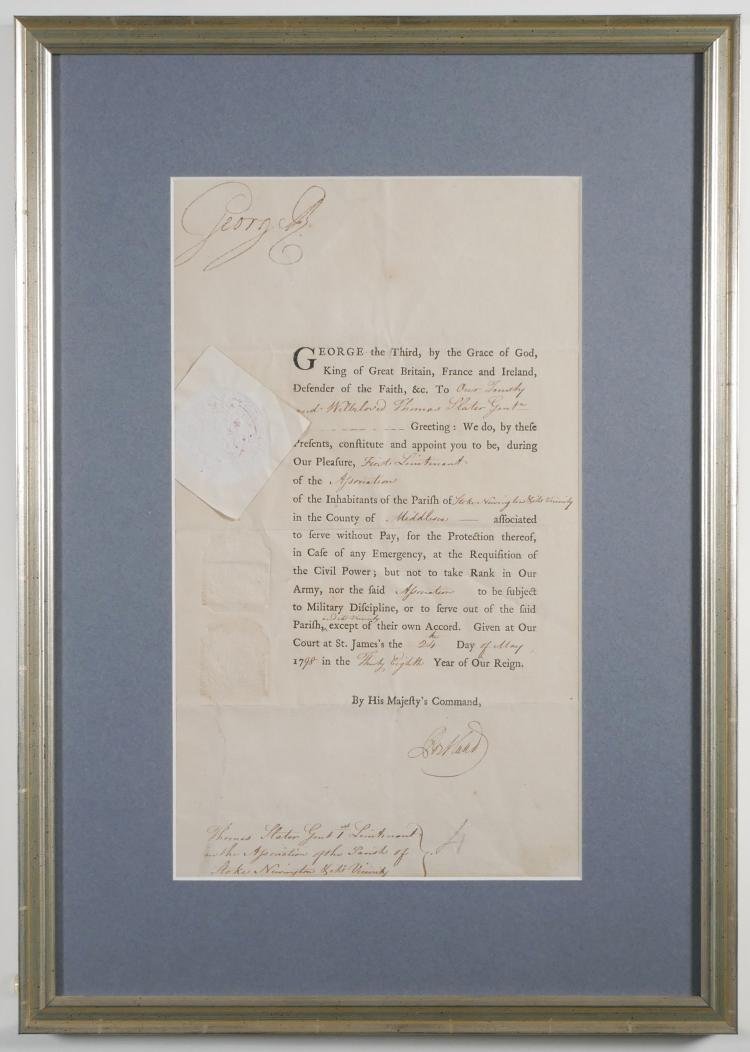 George R.
GEORGE the Third, by the Grace of God,
King of Great Britain, France and Ireland,
Defender of the Faith, &c. To Our Trusty
and Welbeloved Thomas Slater Gentn
Greeting: We do, by theſe
Preſents, conſtitute and appoint you to be, during
Our Pleaſure, First Lieutenant
of the Aſsociation
of the Inhabitants of the Pariſh of Stoke Newington & its Vicinity
in the County of Middlesex — aſſociated
to ſerve without Pay, for the Protection thereof,
in Caſe of any Emergency, at the Requiſition of
the Civil Power; but not to take Rank in Our
Army, nor the ſaid Aſsociation to be ſubject
to Military Diſcipline, or to ſerve out of the ſaid
and its Vicinity
Pariſh, except of their own Accord. Given at Our
Court at St. James's the 24th Day of May
1798 in the Thirty Eighth Year of Our Reign.
By His Majeſty's Command,
Portland
Thomas Slater Gent 1st Lieutenant
in the Aſsociation of the Parish of
Stoke Newington & its Vicinity